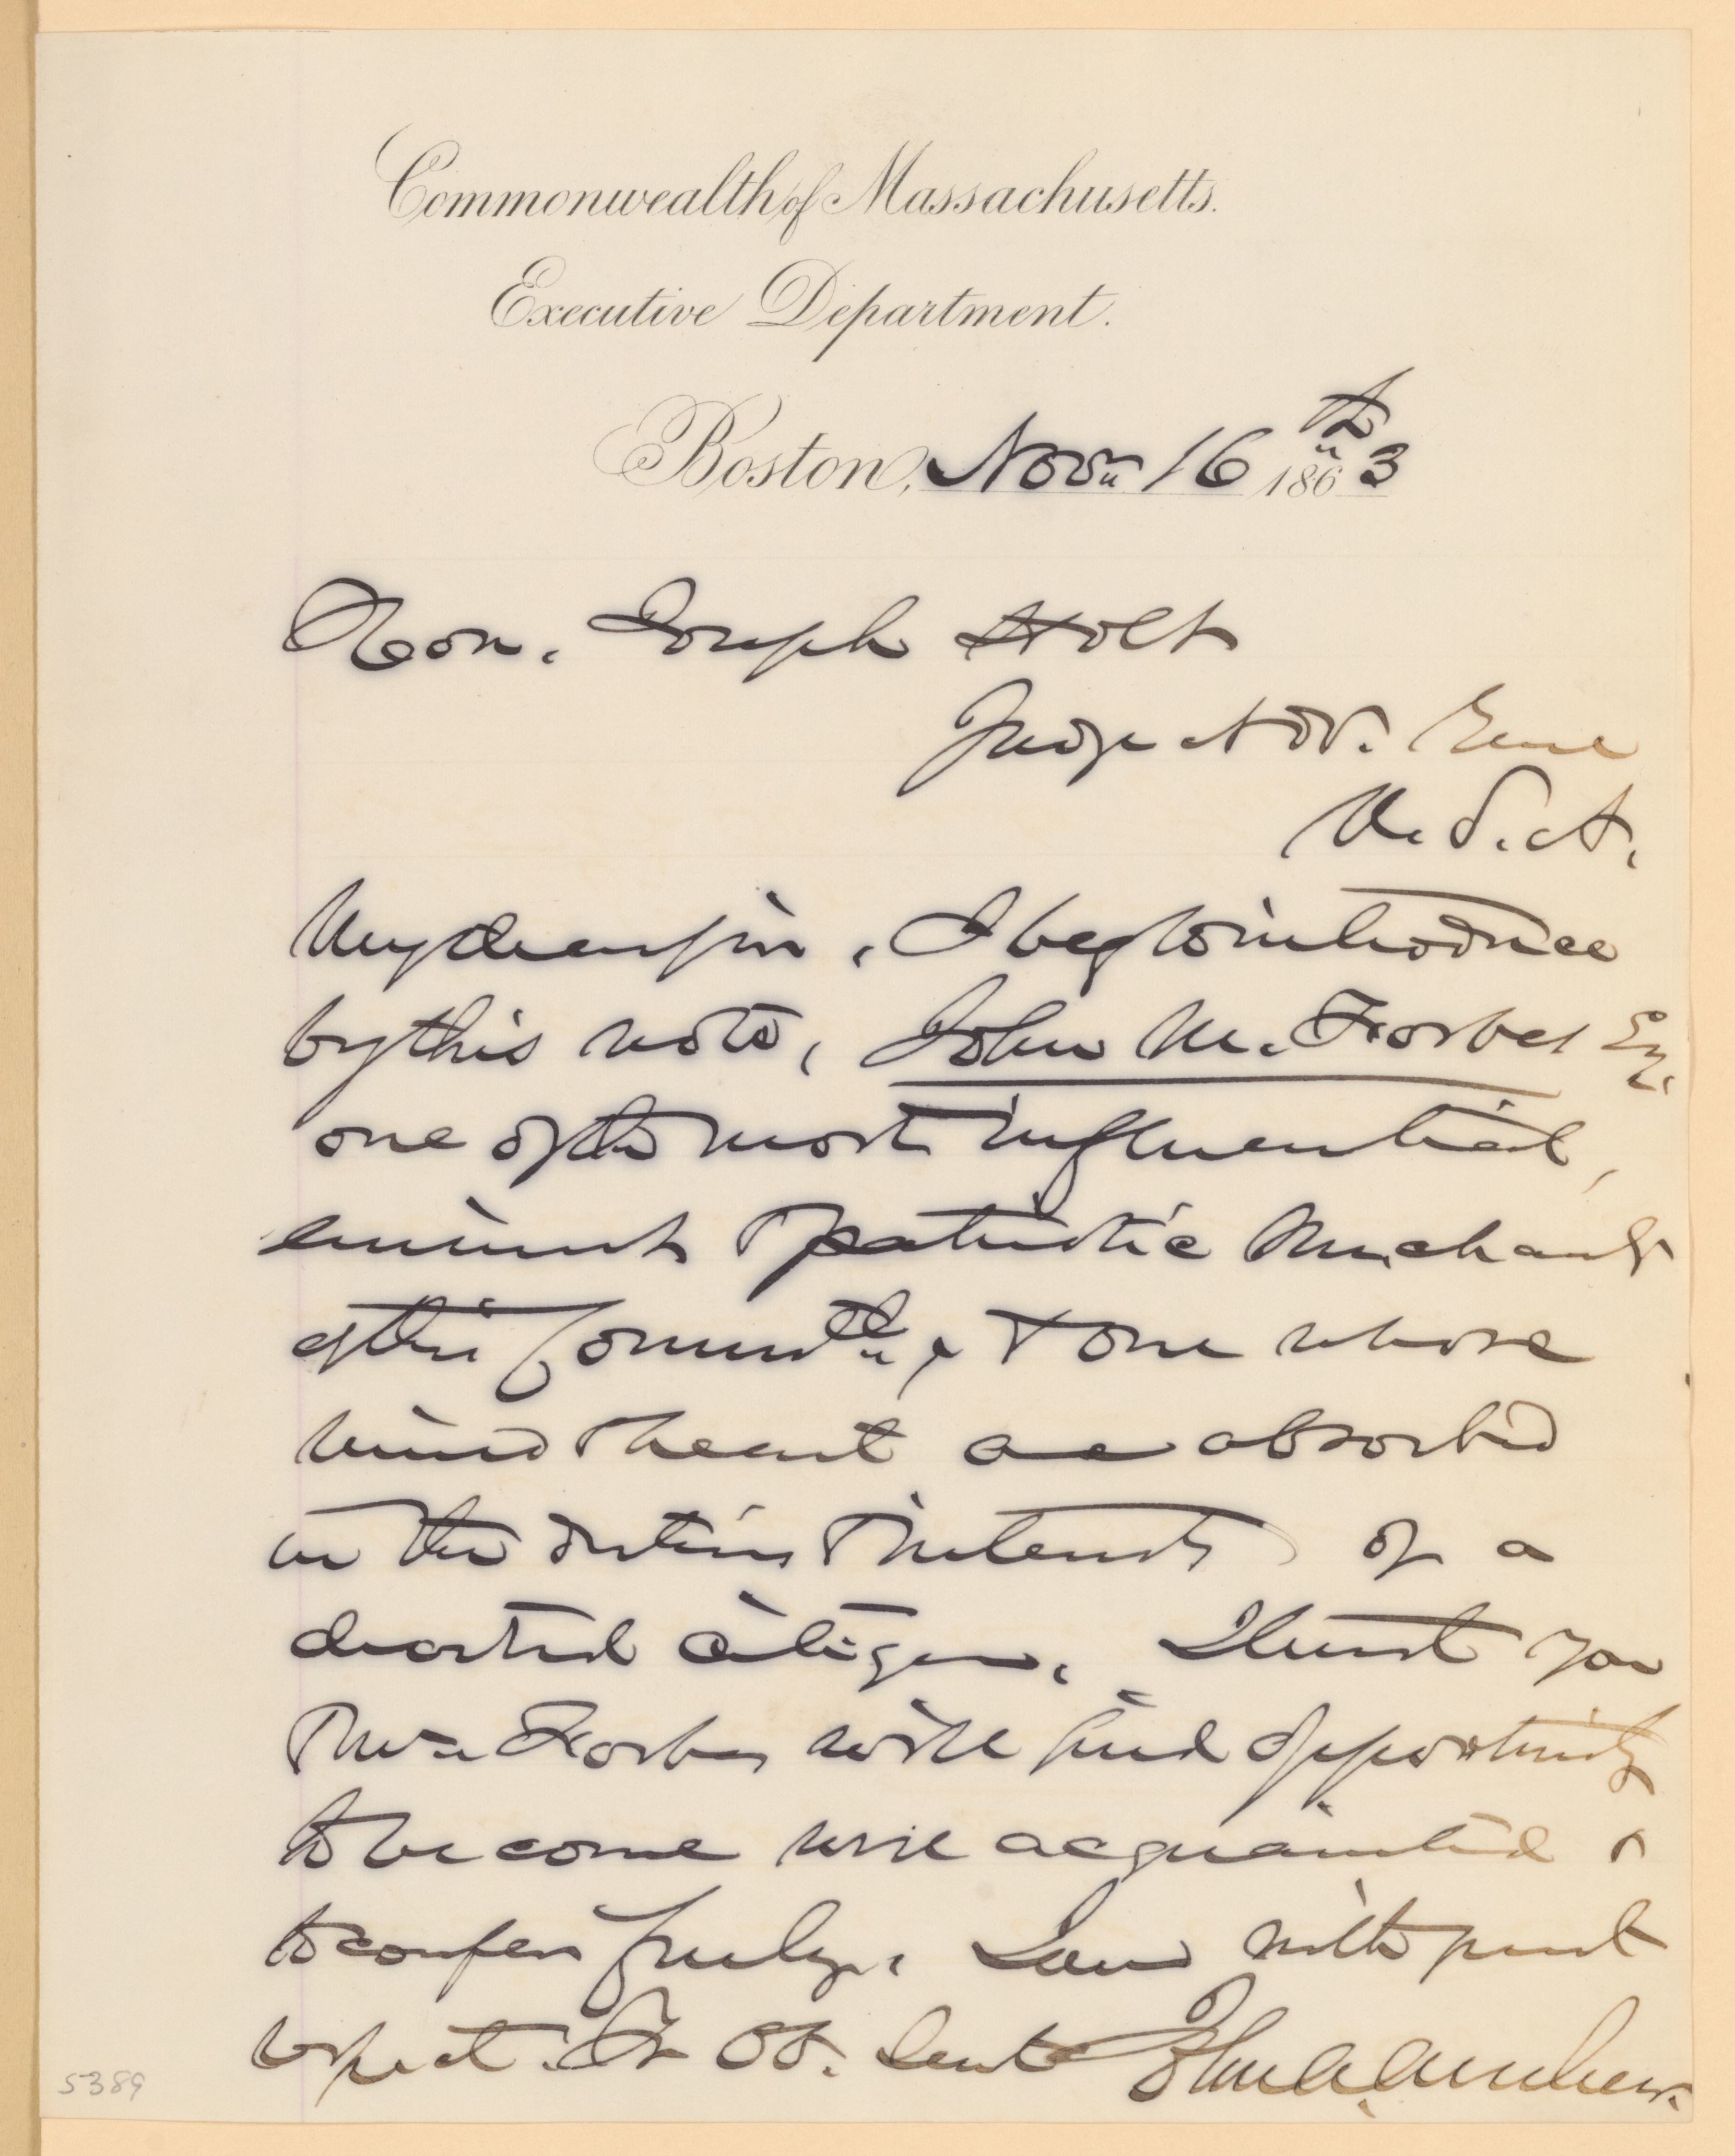 Commonwealth of Massachusetts.
Executive Department.
Boston, Nov. 16th 1863
Hon. Joseph Holt
Judge Adv. Genl
U.S.A.
My dear sir, I beg to introduce
by this note, John M. Forbes Esq.
one of the most influential,
eminent & patriotic merchants
of this Commwlth, & one whose
mind & heart are absorbed
in the duties & interests of a
devoted citizen. I trust you
& Mr. Forbes will find opportunity
to become well acquainted &
to confer freely. I am with great
respect. Yr Ob. Servt John A. Andrew.
5389